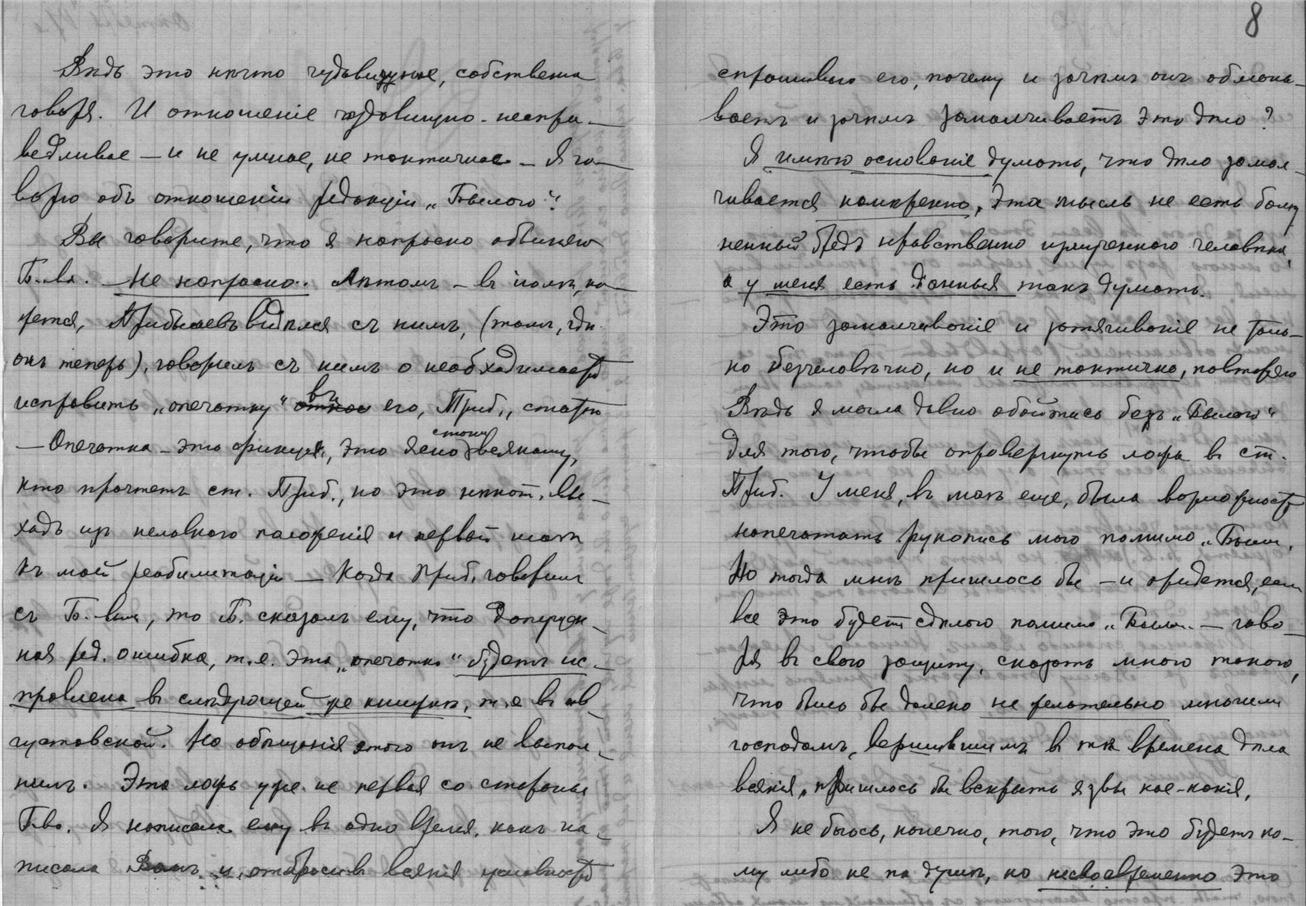 8
Вѣдь это нѣчто чудовищное, собственно
говоря. И отношеніе чудовищно-неспра-
ведливое — и не умное, не тактичное — Я го-
ворю объ отношеніи редакціи „Былого".
Вы говорите, что я напрасно обвиняю
Б-ва. Не напрасно. Лѣтомъ — въ іюлѣ, ка-
жется, Прибылевъ видѣлся съ нимъ, (тамъ, гдѣ
онъ теперь), говорилъ съ нимъ о необходимости
исправить „опечатку" въ его, Приб., статьѣ
— Опечатка — это фикція, это ясно всякому,
кто прочтетъ ст. Приб., но это вы-
ходъ изъ неловкаго положенія и первый шагъ
къ моей реабилитаціи — Когда Приб. говорилъ
съ Б-вымъ, то Б. сказалъ ему, что допущен-
ная ред. ошибка, т.е. эта „опечатка" будетъ ис-
правлена въ слѣдующей же книжкѣ, т.е въ ав-
густовской. Но обѣщанія этого онъ не выпол-
нилъ. Эта ложь уже не первая со стороны
Б-ва. Я написала ему въ одно время, какъ на-
писала Вамъ, и, отбросивъ всякія условности
спрашиваю его, почему и зачѣмъ онъ обманы-
ваетъ и зачѣмъ замалчиваетъ это дѣло?
Я имѣю основаніе думать, что дѣло замал-
чивается намѣренно, эта мысль не есть болѣз-
ненный бредъ нравственно измученнаго человѣка,
а у меня есть данныя такъ думать.
Это замалчиваніе и затягиваніе не толь-
ко безчеловѣчно, но и не тактично, повторяю
Вѣдь я могла давно обойтись безъ „Былого"
для того, чтобы опровергнуть ложь въ ст.
Приб. У меня, въ маѣ еще, была возможность
напечатать рукопись мою помимо „Былого".
Но тогда мнѣ пришлось бы — и придется, если
все это будетъ сдѣлано помимо „Былого" — гово-
ря въ свою защиту, сказать много такого,
что было бы далеко не желательно многимъ
господамъ, вершившимъ въ тѣ времена дѣла
всякія, пришлось бы вскрыть язвы кое-какія.
Я не боюсь, конечно, того, что это будетъ ко-
му либо не по душѣ, но несвоевременно это